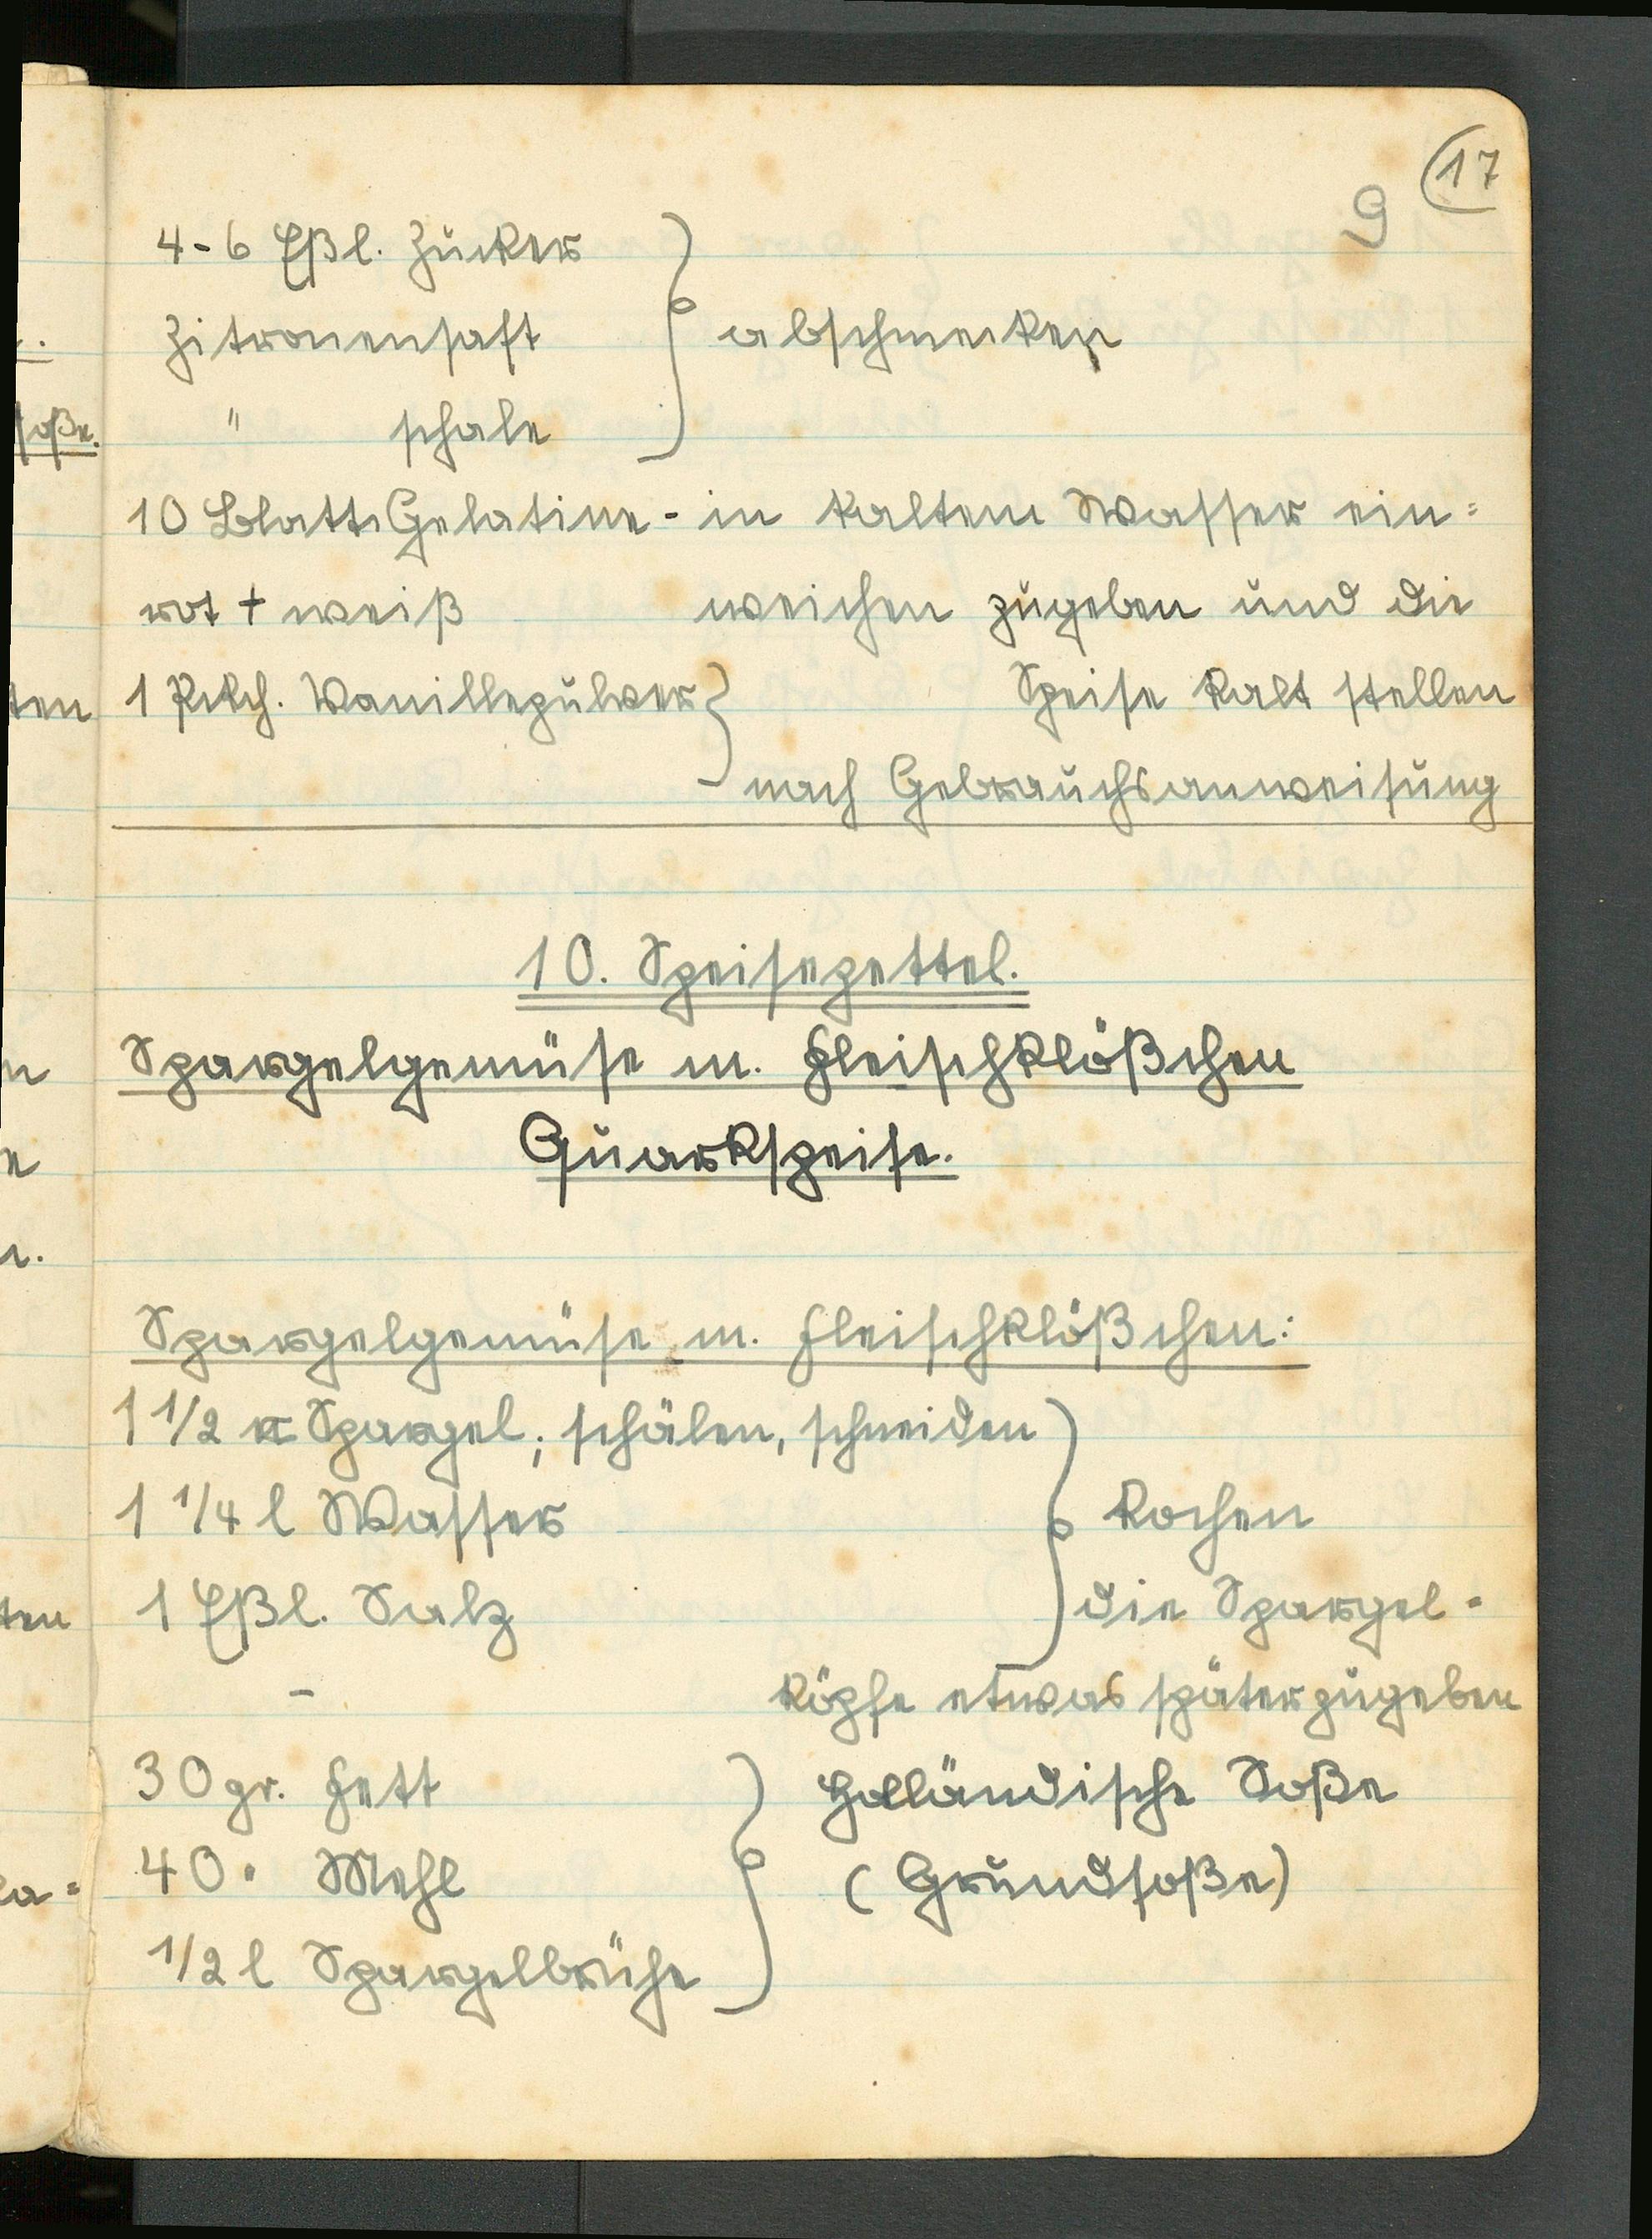 17
9
4-6 Eßl. Zucker
Zitronensaft } abschmecken
" schale
10 Blatt Gelatine - in kaltem Wasser ein=
rot + weiß weichen zugeben und die
1 Pckch. Vanillepulver } Speise kalt stellen
nach Gebrauchsanweisung
10. Speisezettel.
Spargelgemüse m. Fleischklößchen
Quarkspeise.
Spargelgemüse m. Fleischklößchen:
1 1/2 ℔ Spargel; schälen, schneiden
1 1/4 l Wasser } kochen
1 Eßl. Salz die Spargel-
- köpfe etwas später zugeben
30 gr. Fett } Holländische Soße
40 " Mehl (Grundsoße)
1/2 l Spargelbrühe